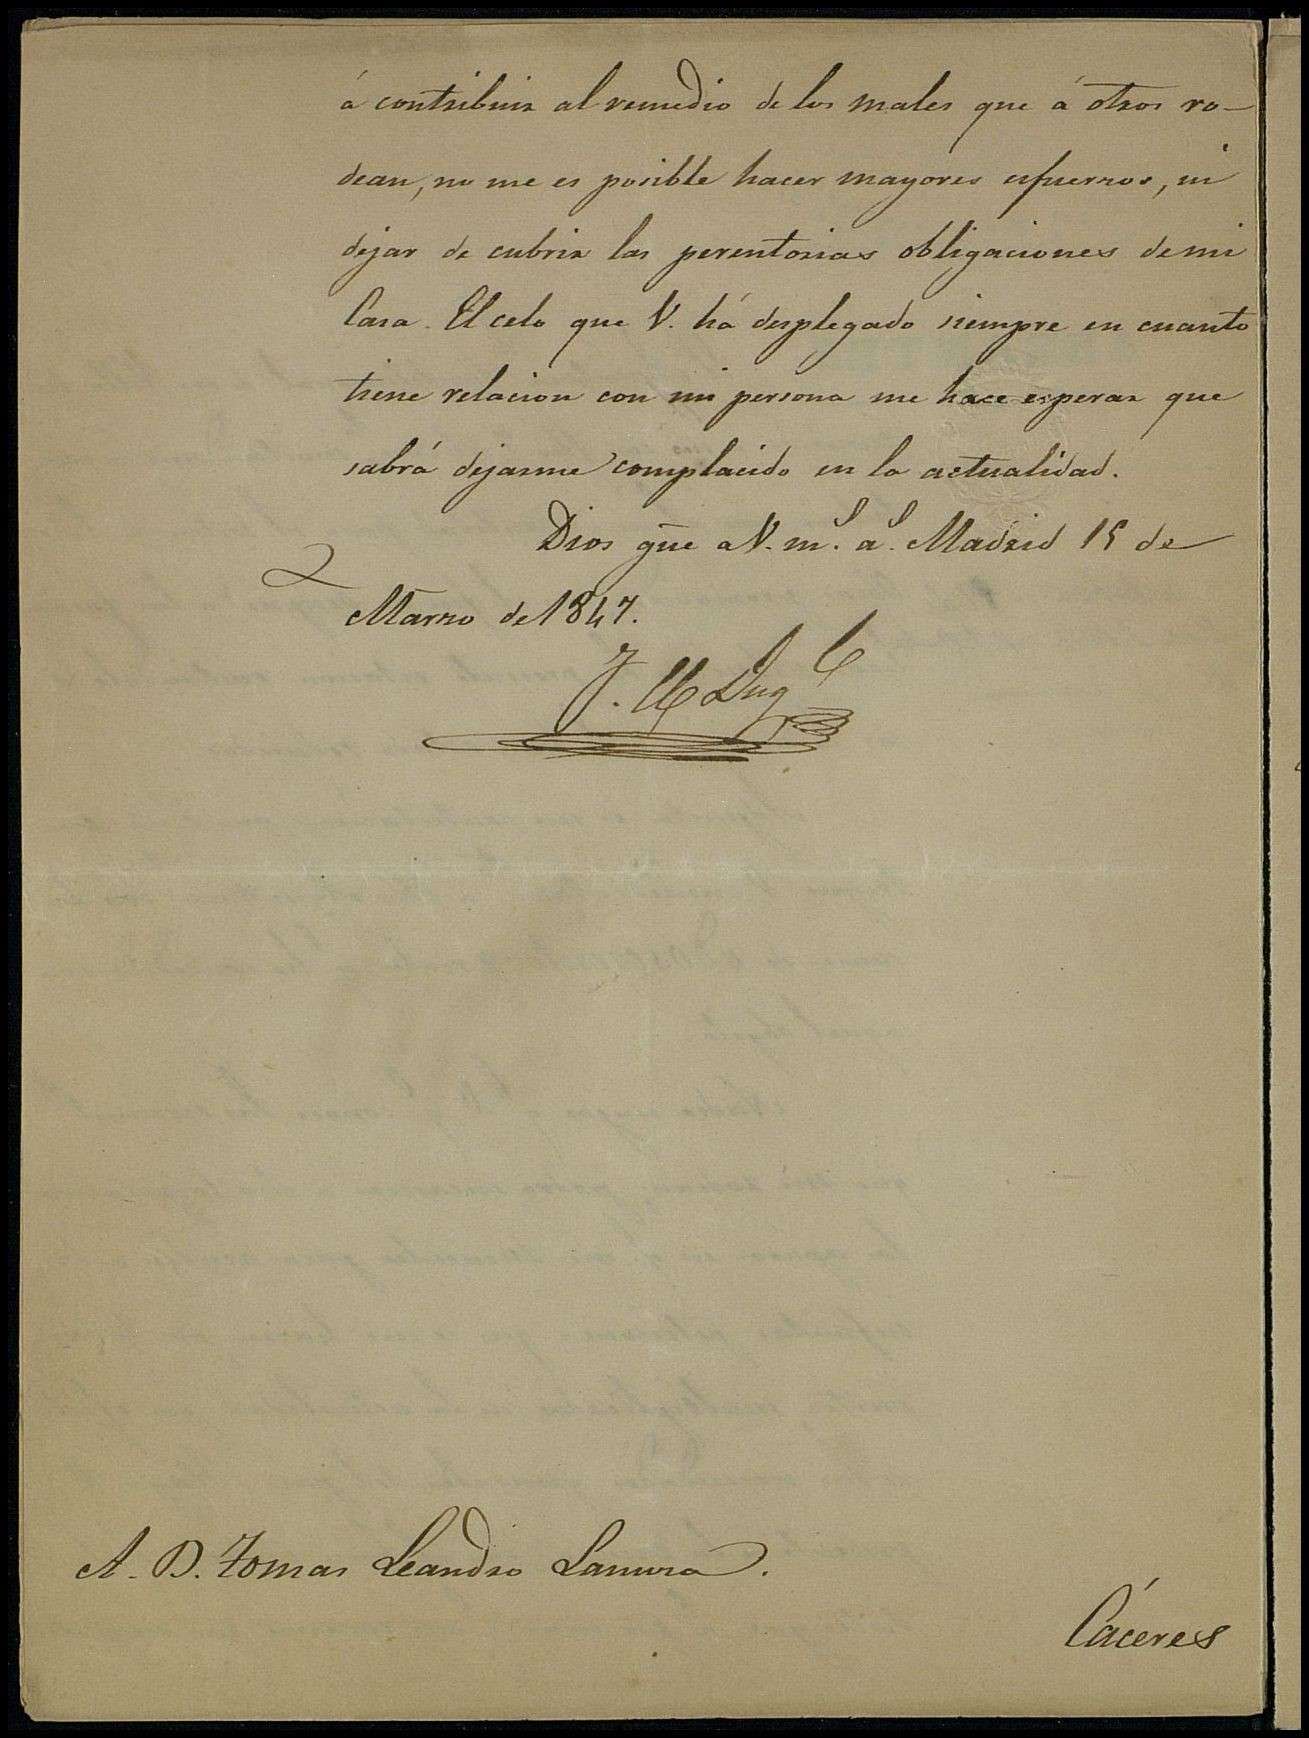 á contribuir al remedio de los males que á otros ro-
dean, no me es posible hacer mayores esfuerzos, ni
dejar de cubrir las perentorias obligaciones de mi
Casa. El celo que V. há desplegado siempre en cuanto
tiene relacion con mi persona me hace esperar que
sabrá dejarme complacido en la actualidad.
Dios gūe a V. m.s a.s Madrid 15 de
Marzo de 1847.
A. D. Tomas Leandro
Cáceres